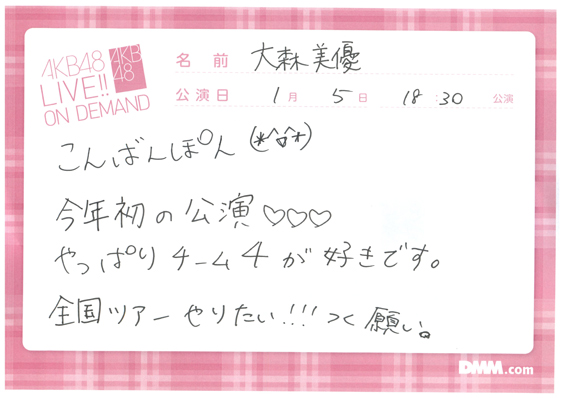 AKB48
LIVE!!
ON DEMAND
AKB
48
名前 大森美優
公演日 1月 5日 18:30 公演
こんばんぽん(*^o^*)
今年初の公演♡♡♡
やっぱりチーム4が好きです。
全国ツアーやりたい!!!つく願い。
DMM.com